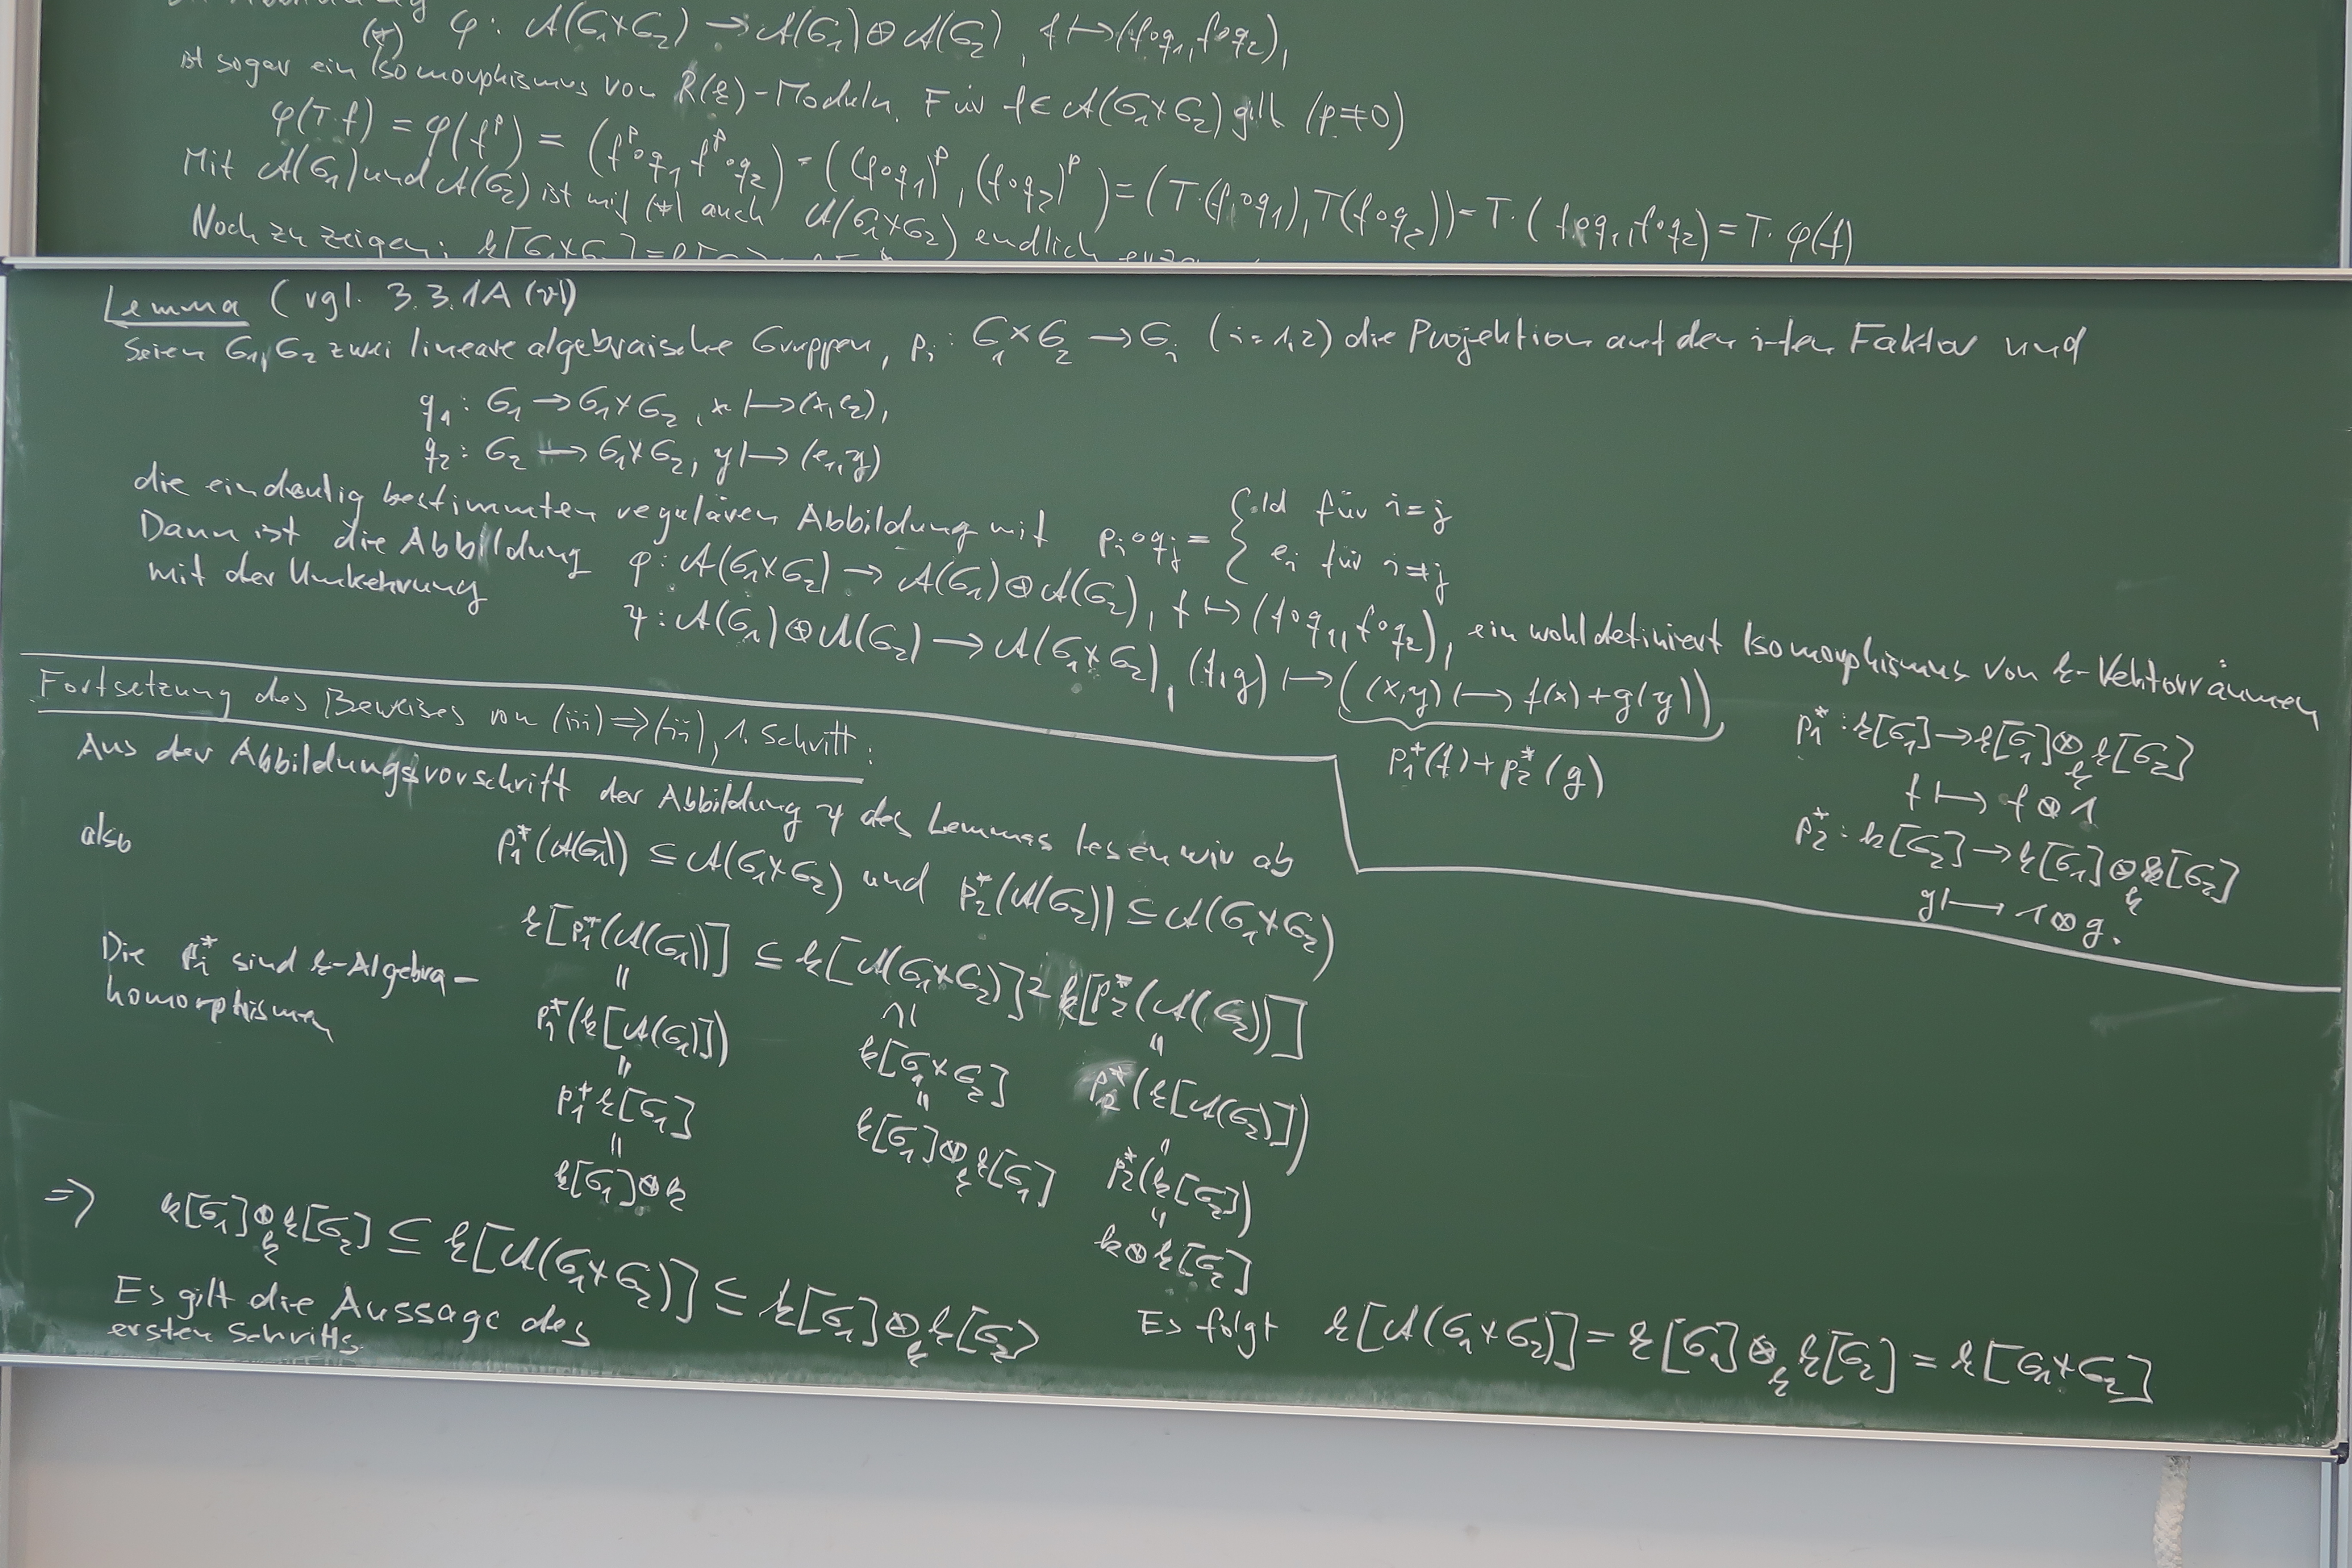 (*) φ: 𝒜(G₁×G₂) → 𝒜(G₁)⊕𝒜(G₂), f ↦ (f∘q₁, f∘q₂),
ist sogar ein Isomorphismus von R(k)-Moduln. Für f ∈ 𝒜(G₁×G₂) gilt (p≠0)
φ(T·f) = φ(f^p) = (f^p∘q₁, f^p∘q₂) = ((f∘q₁)^p, (f∘q₂)^p) = (T·(f∘q₁), T(f∘q₂)) = T·(f∘q₁, f∘q₂) = T·φ(f)
Mit 𝒜(G₁) und 𝒜(G₂) ist mit (*) auch 𝒜(G₁×G₂) endlich
Noch zu zeigen:
Lemma (vgl. 3.3.1A (vi)
Seien G₁, G₂ zwei lineare algebraische Gruppen, pᵢ: G₁×G₂ → Gᵢ (i=1,2) die Projektion auf den i-ten Faktor und
q₁: G₁ → G₁×G₂, x ↦ (x,e₂),
q₂: G₂ ↦ G₁×G₂, y ↦ (e₁,y)
die eindeutig bestimmten regulären Abbildung mit pᵢ∘qⱼ = { Id für i=j
eᵢ für i≠j
Dann ist die Abbildung φ: 𝒜(G₁×G₂) → 𝒜(G₁)⊕𝒜(G₂), f ↦ (f∘q₁, f∘q₂), ein wohldefiniert Isomorphismus von k-Vektorräumen
mit der Umkehrung ψ: 𝒜(G₁)⊕𝒜(G₂) → 𝒜(G₁×G₂), (f,g) ↦ ((x,y) ↦ f(x)+g(y))
p₁*(f)+p₂*(g)
p₁*: k[G₁] → k[G₁]⊗ₖk[G₂]
f ↦ f⊗1
p₂*: k[G₂] → k[G₁]⊗ₖk[G₂]
g ↦ 1⊗g.
Fortsetzung des Beweises von (iii)⇒(ii), 1. Schritt:
Aus der Abbildungsvorschrift der Abbildung ψ des Lemmas lesen wir ab
p₁*(𝒜(G₁)) ⊆ 𝒜(G₁×G₂) und p₂*(𝒜(G₂)) ⊆ 𝒜(G₁×G₂)
also
k[p₁*(𝒜(G₁))] ⊆ k[𝒜(G₁×G₂)] ⊇ k[p₂*(𝒜(G₂))]
Die pᵢ* sind k-Algebra-
homorphismen
= ∩| =
p₁*(k[𝒜(G₁)]) k[G₁×G₂] p₂*(k[𝒜(G₂)])
= = =
p₁*k[G₁] k[G₁]⊗ₖk[G₁] p₂*(k[G₂])
= =
k[G₁]⊗k k⊗k[G₂]
⇒ k[G₁]⊗ₖk[G₂] ⊆ k[𝒜(G₁×G₂)] ⊆ k[G₁]⊗ₖk[G₂]
Es folgt k[𝒜(G₁×G₂)] = k[G₁]⊗ₖk[G₂] = k[G₁×G₂]
Es gilt die Aussage des
ersten Schritts.